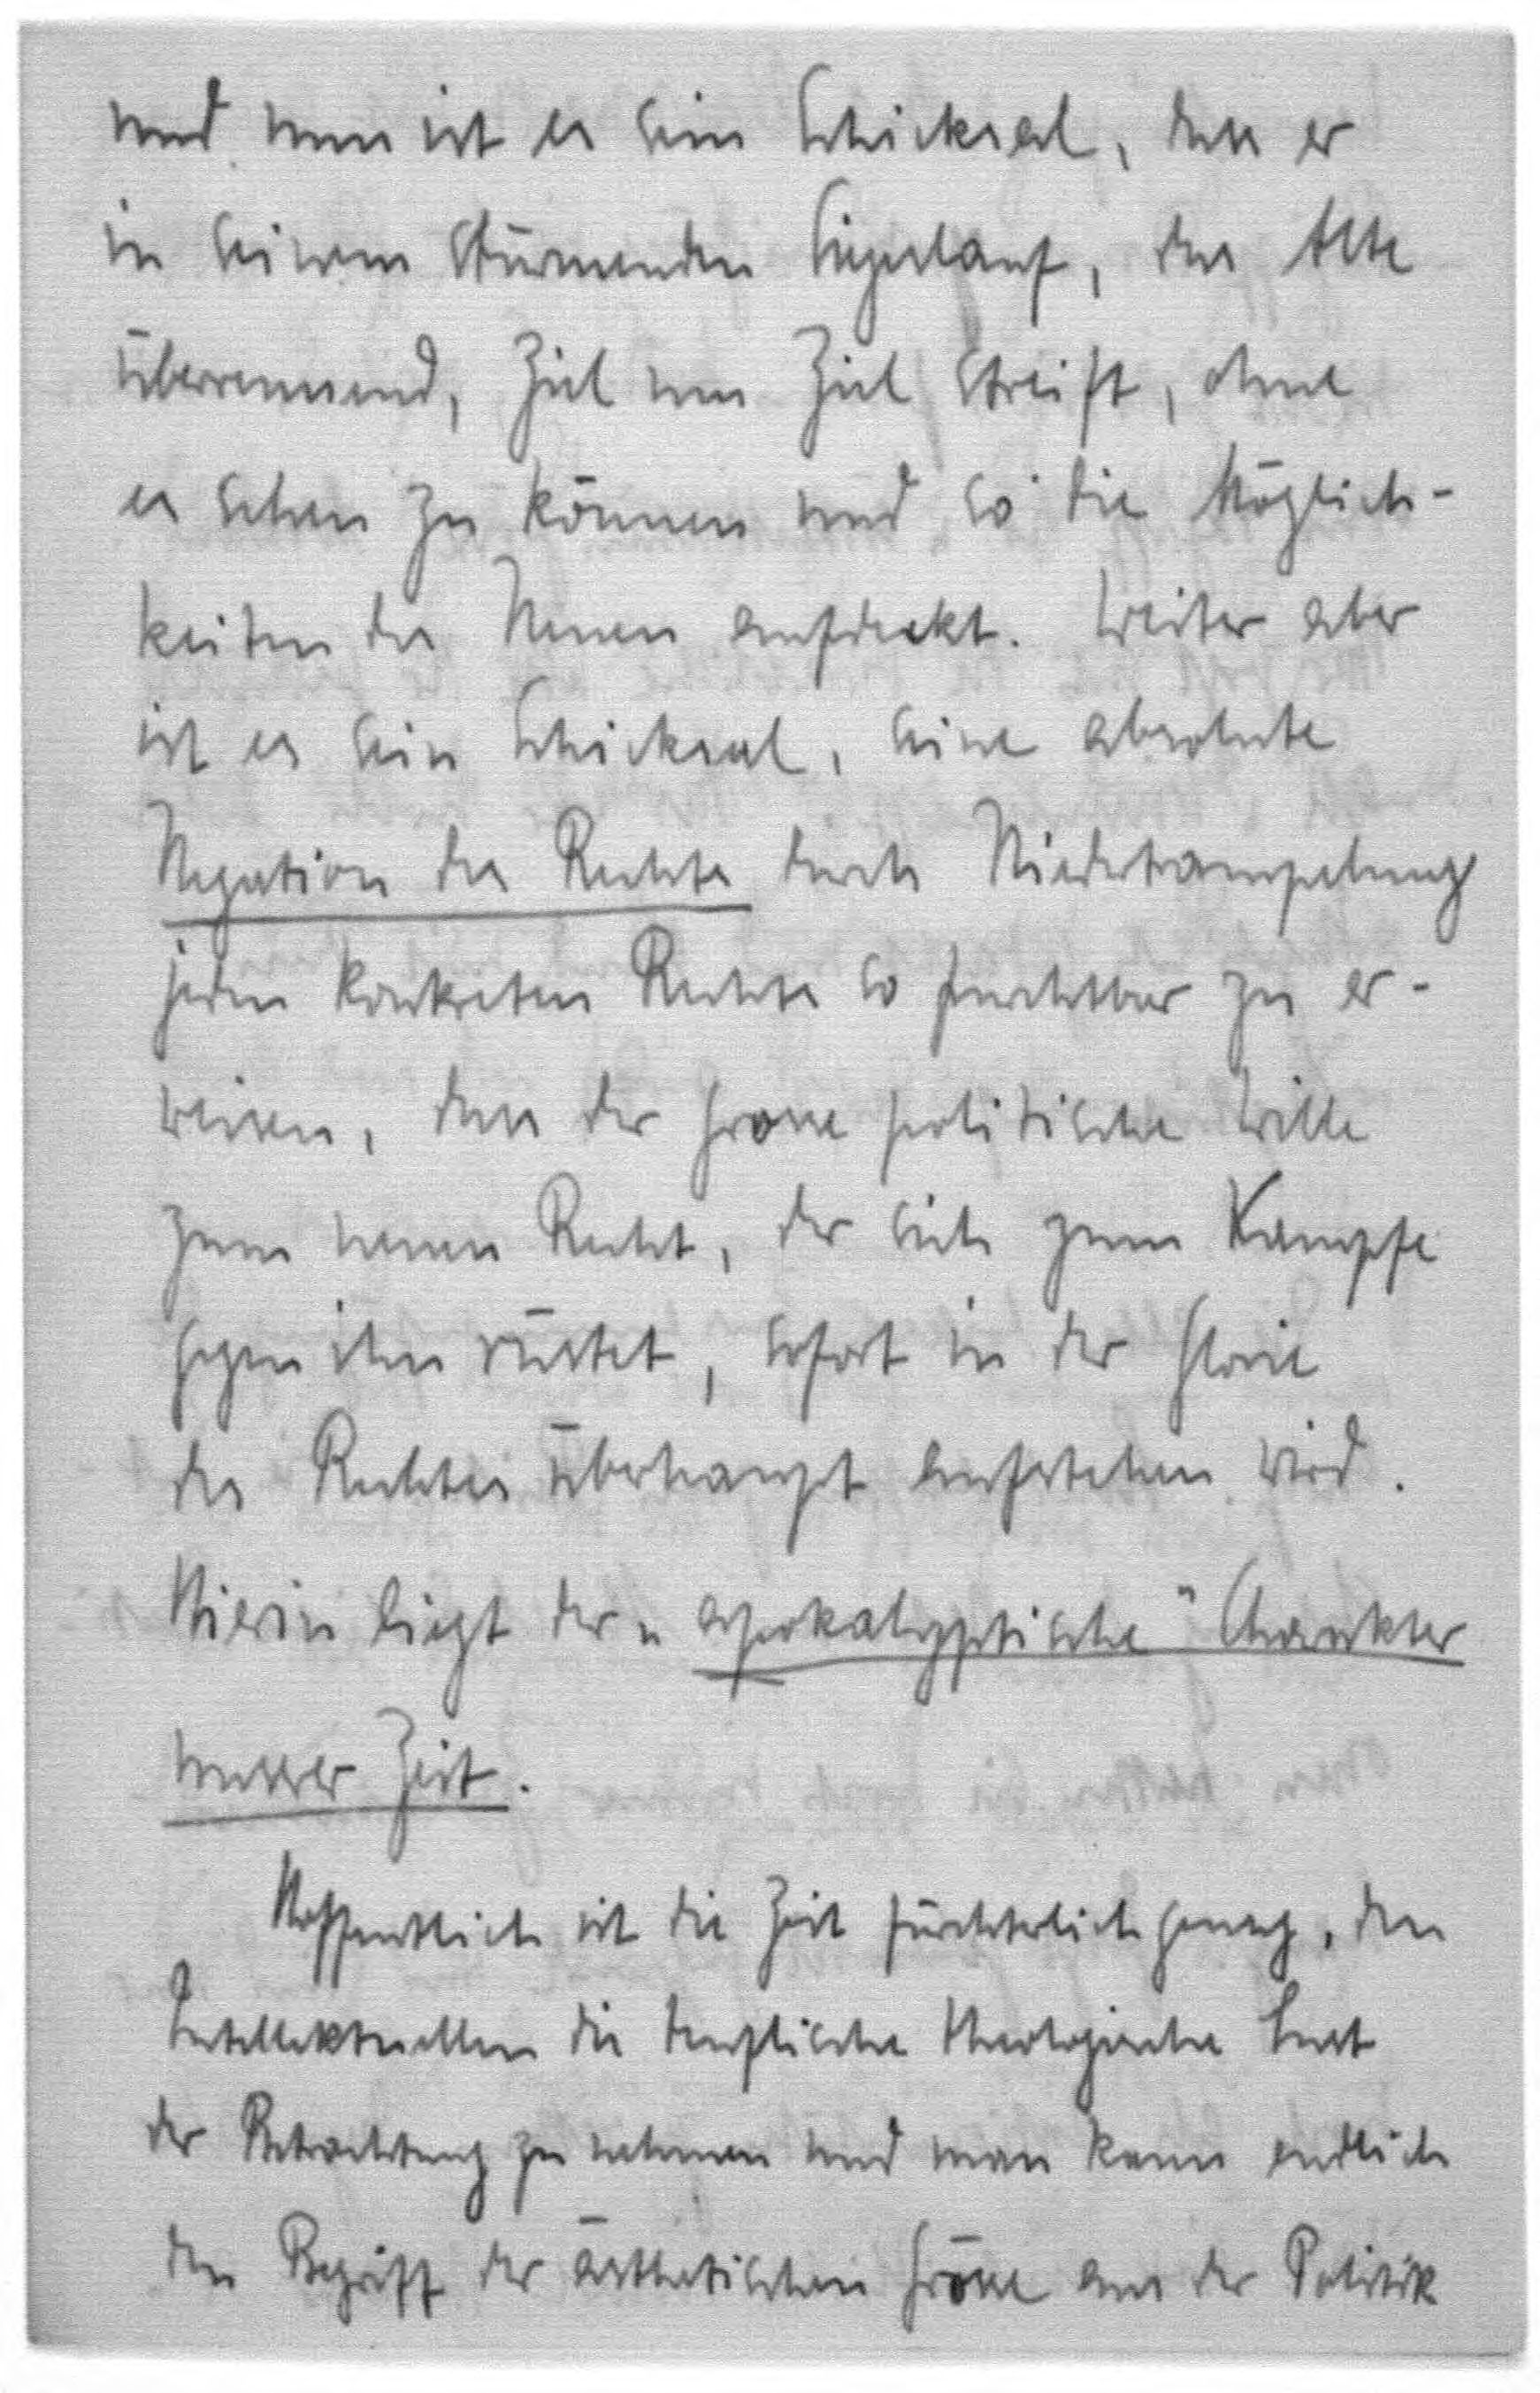 und nun ist es sein Schicksal, dass er
in seinem stürmenden Siegeslauf, das Alte
überrennend, Ziel um Ziel streift, ohne
es sehen zu können und so die Möglich-
keiten des Neuen aufdeckt. Weiter aber
ist es sein Schicksal, seine absolute
Negation des Rechts durch Niedertrampelung
jeden konkreten Rechts so furchtbar zu er-
weisen, dass der grosse politische Wille
zum neuen Recht, der sich zum Kampfe
gegen ihn rüstet, sofort in der Glorie
des Rechtes überhaupt aufstehen wird.
Hierin liegt der „apokalyptische“ Charakter
unserer Zeit.
Hoffentlich ist die Zeit fürchterlich genug, den
Intellektuellen die teuflische theologische Lust
der Betrachtung zu nehmen und man kann endlich
den Begriff der ästhetischen Grösse aus der Politik